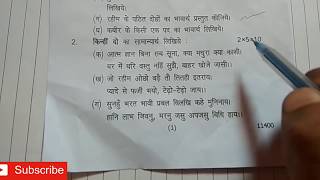 लिखिये।
(ग) रहीम के पठित दोहों का भावार्थ प्रस्तुत कीजिये।
(घ) कबीर के किसी एक पद का भावार्थ लिखिये।
2. किन्हीं दो का सामान्यार्थ लिखिये 2×5=10
(क) आत्म ज्ञान बिना सब सूना, क्या मथुरा क्या कासी।
घर में वस्तु नहिं सूझै, बाहर खोजे जासी।।
(ख) जो रहीम ओछो बढ़ै तौ तितही इतराय।
प्यादे से फर्जी भयो, टेढ़ो-टेढ़ो जाय।।
(ग) सुनहुँ भरत भावी प्रबल बिलखि कहे मुनिनाथ।
हानि लाभ जिवनु, मरनु जसु अपजसु बिधि हाथ।।
(1) 11400
Subscribe